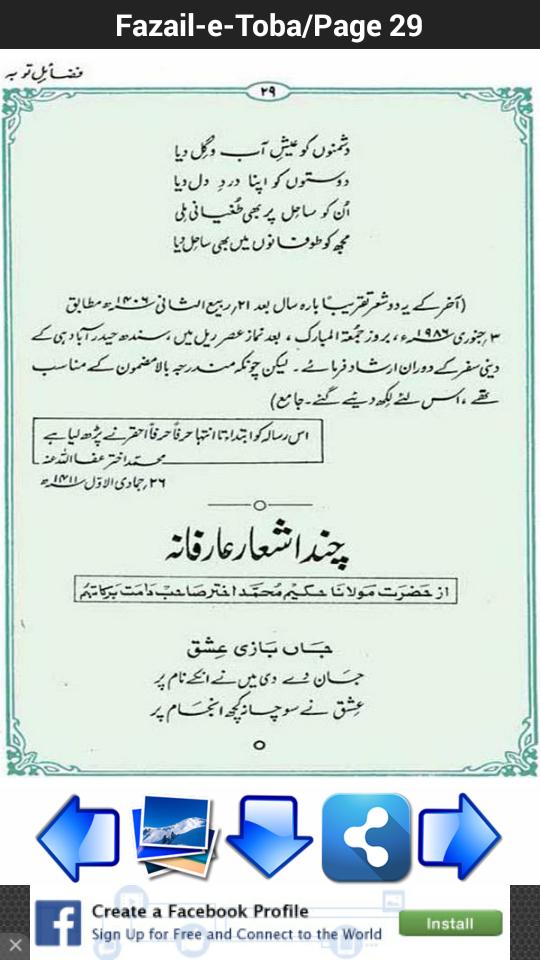 Fazail-e-Toba/Page 29
فضائلِ توبہ
۲۹
دشمنوں کو عیشِ آب و گِل دیا
دوستوں کو اپنا دردِ دل دیا
اُن کو ساحل پر بھی طُغیانی ملی
مجھ کو طوفانوں میں بھی ساحل دیا
(آخر کے یہ دو شعر تقریباً بارہ سال بعد ۲۱؍ ربیع الثانی ۱۴۰۶ھ مطابق
۳؍ جنوری ۱۹۸۶ء ، بروز جمُعۃ المبارک ، بعد نماز عصر ریل میں ، سندھ حیدرآباد ہی کے
دینی سفر کے دوران ارشاد فرمائے ۔ لیکن چونکہ مندرجہ بالا مضمون کے مناسب
تھے ، اس لئے لکھ دئیے گئے ۔ جامع)
اس رسالہ کو ابتداء تا انتہا حرفاً حرفاً احقر نے پڑھ لیا ہے
محمد اختر عفا اللہ عنہ
۲۶؍ جمادی الاوّل ۱۴۱۱ھ
چند اشعار عارفانہ
از حضرت مولانا حکیم محمد اختر صاحب دامت برکاتہم
جاں بازی عشق
جان دے دی میں نے انکے نام پر
عشق نے سوچا نہ کچھ انجام پر
Create a Facebook Profile
Sign Up for Free and Connect to the World
Install